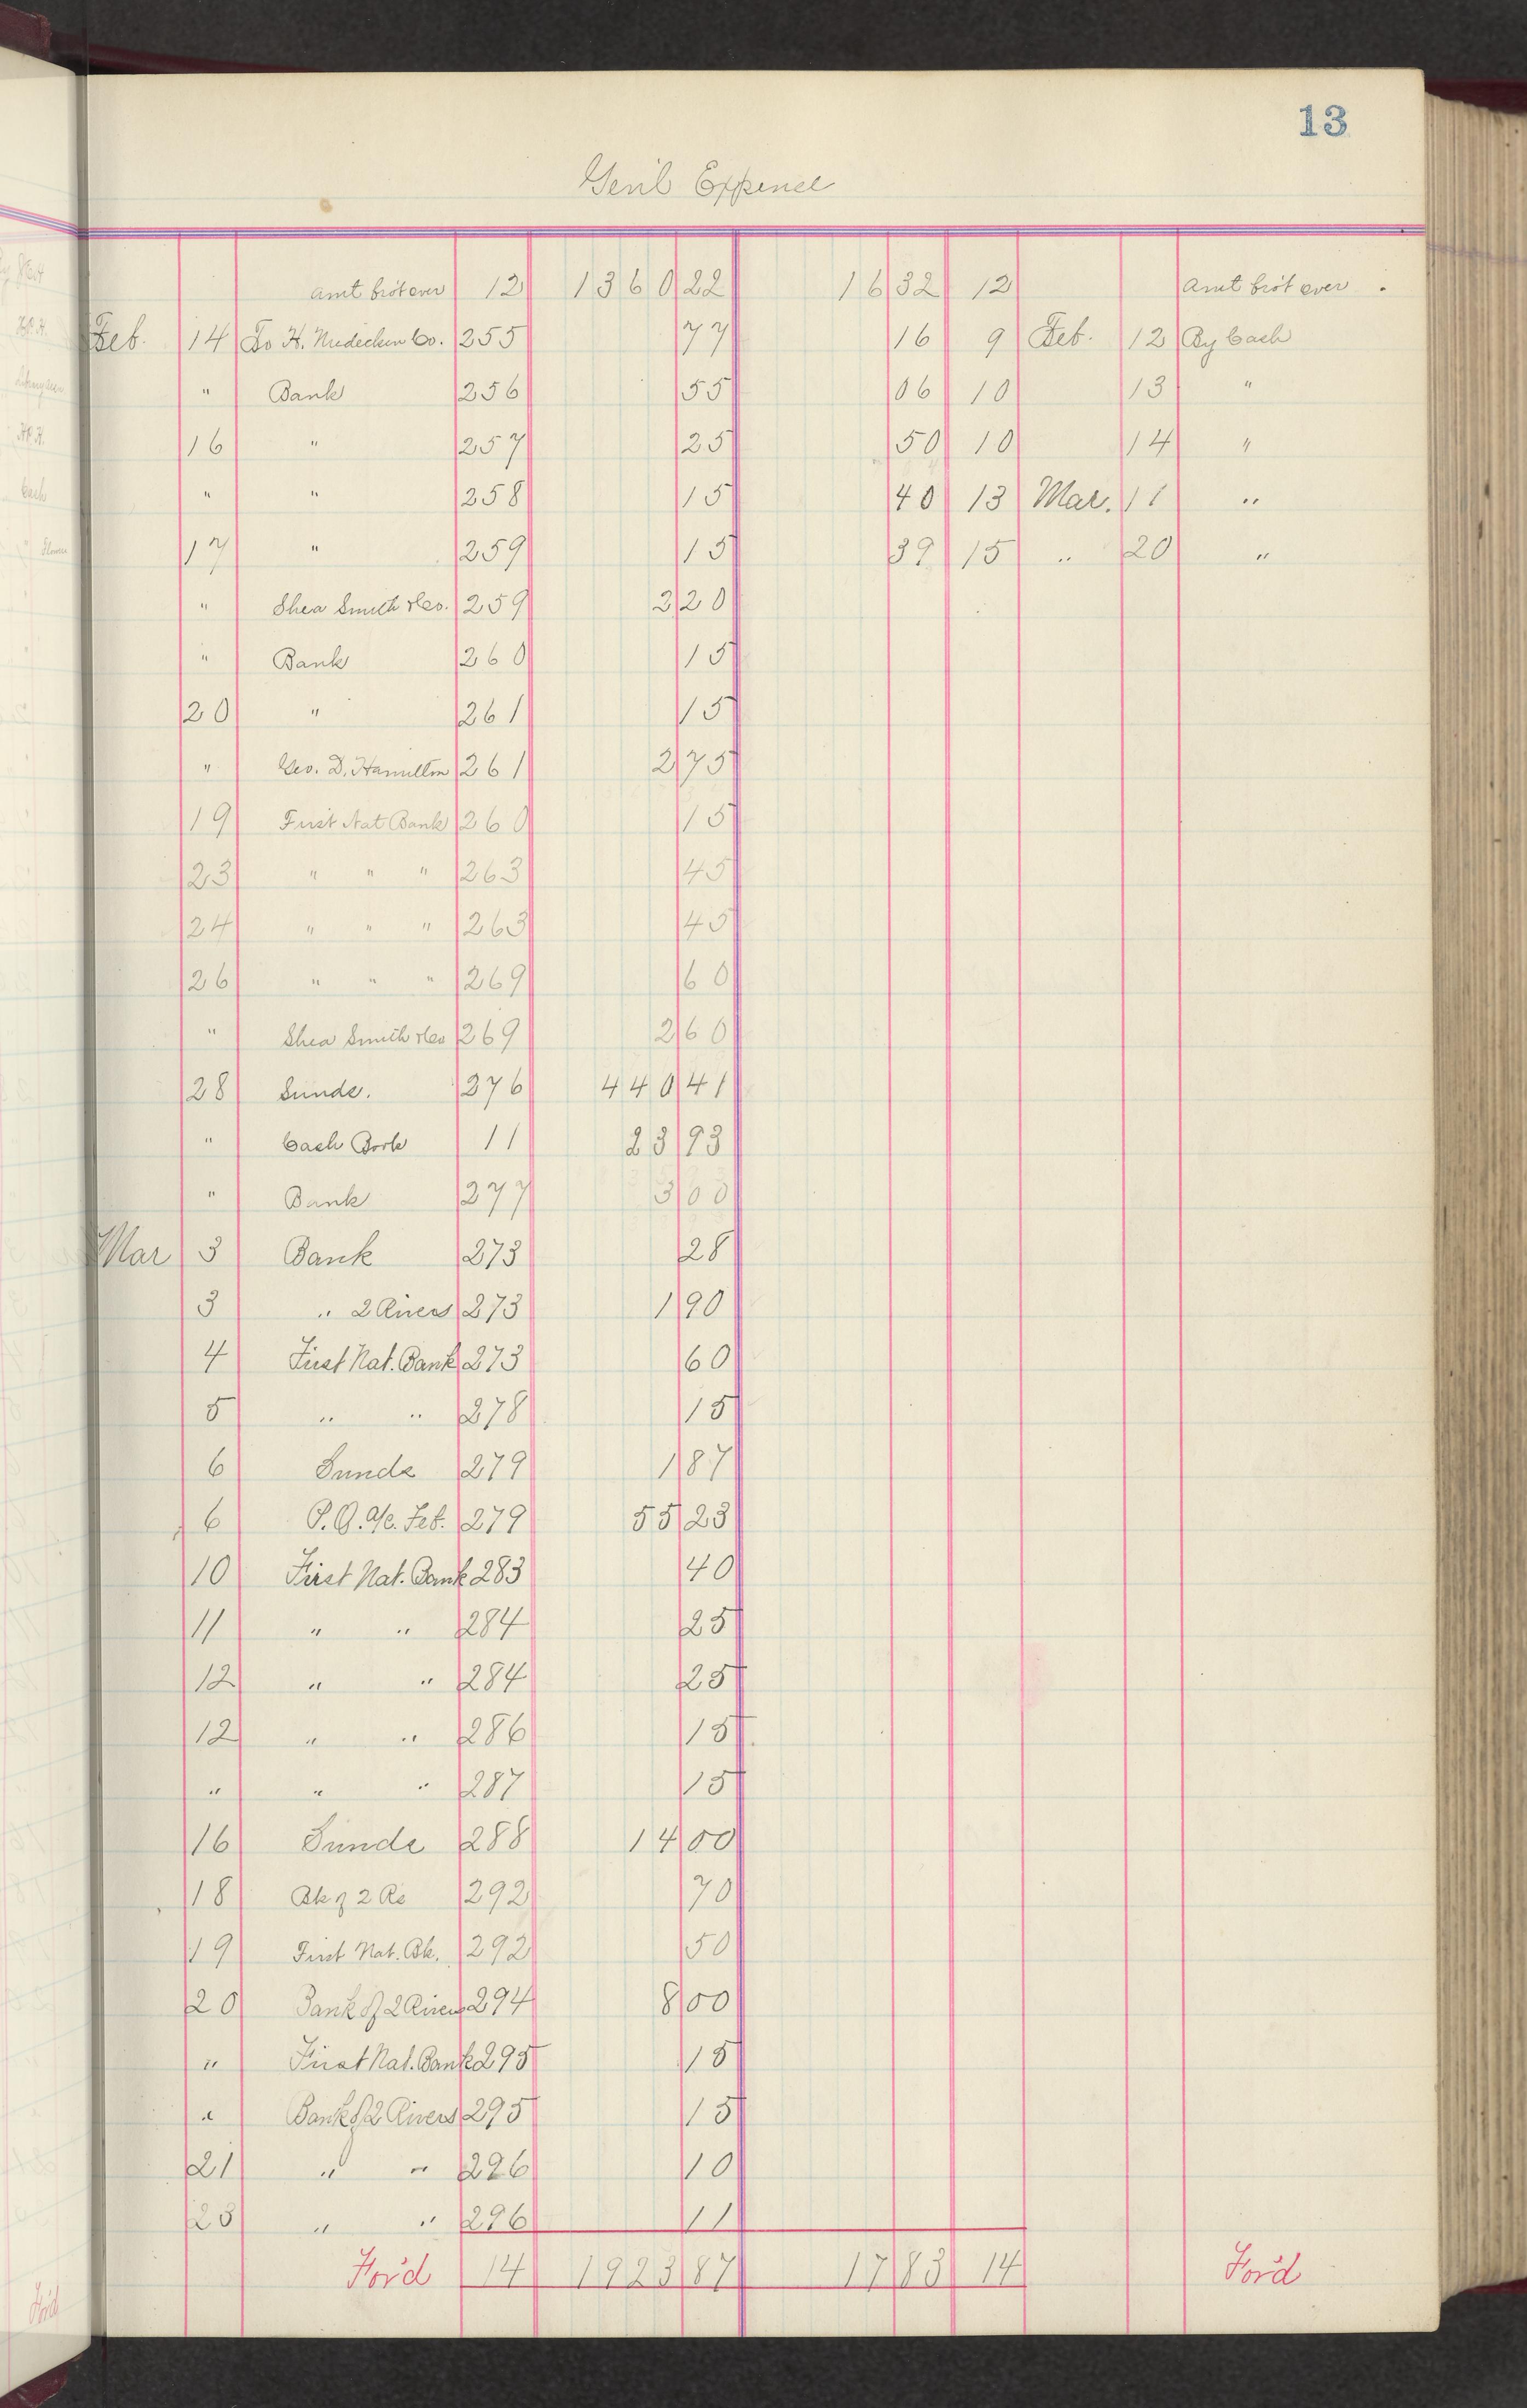 13
Gen'l Expense
Amt brot over 12 1360 22 16 32 12 Amt brot over.
Feb. 14 To H. Niedecken Co. 255 77 16 9 Feb. 12 By Cash
" Bank 256 55 06 10 13 "
16 " 257 25 50 10 14 "
" " 258 15 40 13 Mar. 11 "
17 " 259 15 39 15 " 20 "
" Shea Smith & Co. 259 3 20
" Bank 260 15
20 " 261 15
" Geo. D. Hamilton 261 2 75
19 First Nat Bank 260 15
23 " " " 263 45
24 " " " 263 45
26 " " " 269 60
" Shea Smith & Co 269 2 60
28 Sunds. 276 440 41
" Cash Book 11 23 93
" Bank 277 3 00
Mar 3 Bank 273 28
3 " 2 Rivers 273 1 90
4 First Nat. Bank 273 60
5 " " 278 15
6 Sunds 279 1 87
6 P.O. a/c. Feb. 279 55 23
10 First Nat. Bank 283 40
11 " " 284 25
12 " " 284 25
12 " " 286 15
" " " 287 15
16 Sunds 288 14 00
18 Bk of 2 Rs 292 70
19 First Nat. Bk. 292 50
20 Bank of 2 Rivers 294 8 00
" First Nat. Bank 295 15
" Bank of 2 Rivers 295 15
21 " " 296 10
23 " " 296 11
For'd 14 1923 87 17 83 14 For'd